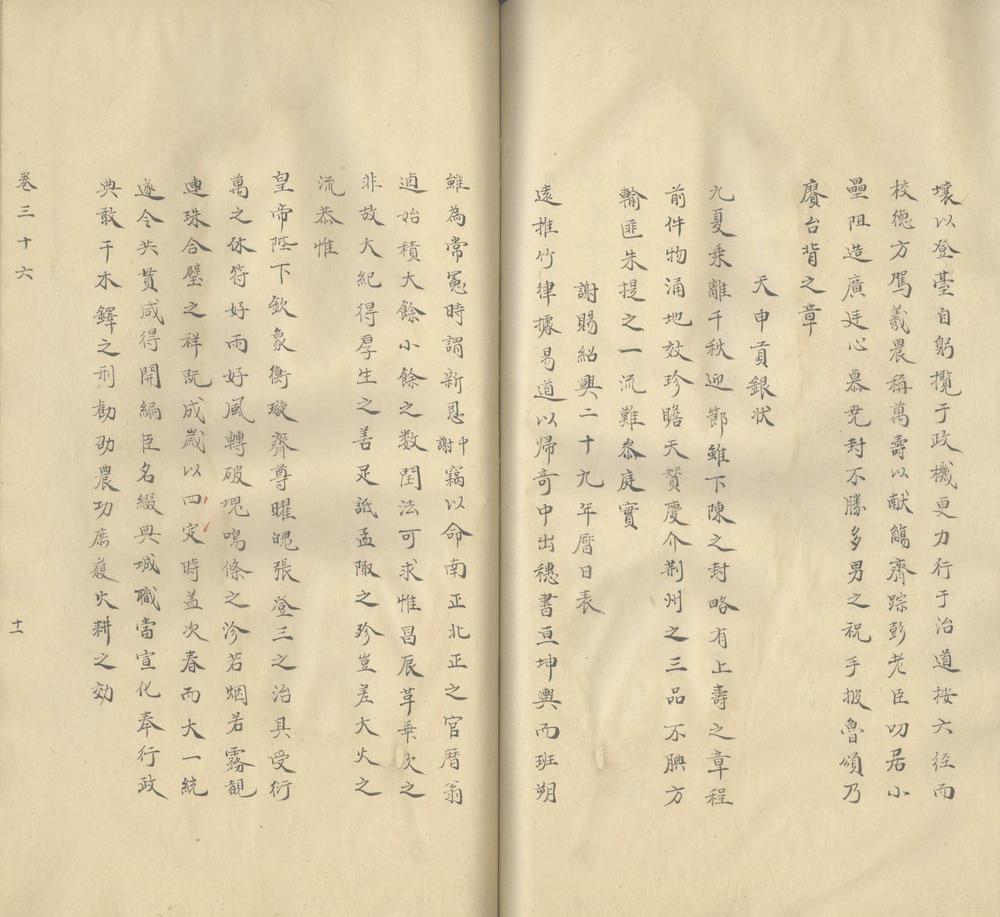 壤以登臺自躬攬于政機更力行于治道按六徑而
校德方駕羲晨稱萬壽以献觴齊踪彭老臣叨居小
壘阻造廣廷心慕堯封不勝多男之祝手披魯頌乃
賡台背之章
天申貢銀状
九夏乗離千秋迎節雖下陳之封略有上壽之章程
前件物涌地效珍瞻天賛慶介荆州之三品不腆方
輸匪朱提之一流難叅庭實
謝賜紹興二十九年曆日表
遠推竹律據易道以帰奇中出穗書亘坤輿而班朔
雖為常憲時謂新恩中謝竊以命南正北正之官曆翁
逌始積大餘小餘之数閏法可求惟昌辰革乗次之
非故大紀得厚生之善足詆孟陬之珍豈差大火之
流恭惟
皇帝陛下欽象衡璇齊尊曜魄張登三之治具受衍
萬之休符好雨好風轉破塊鳴條之沴若烟若霧観
連珠合璧之祥既成嵗以四定時盖次春而大一統
遂令共貫咸得開編臣名綴典城職當宣化奉行政
典敢干木鐸之刑勸劭農功庶蔇火耕之効
卷三十六
十一